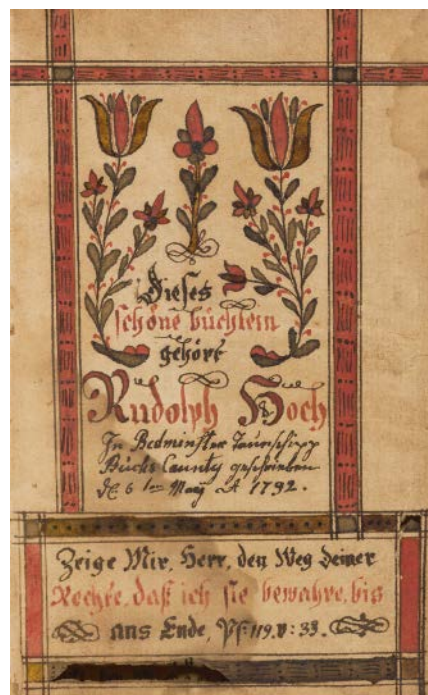 Dieses
schöne büchlein
gehört
Rudolph Hoch
In Bedminster Taunschipp
Bucks County geschrieben
d. 6 ten Maÿ A 1792.
Zeige Mir, Herr, den Weg deiner
Rechte, daß ich sie bewahre, bis
ans Ende, Ps: 119. v: 33.